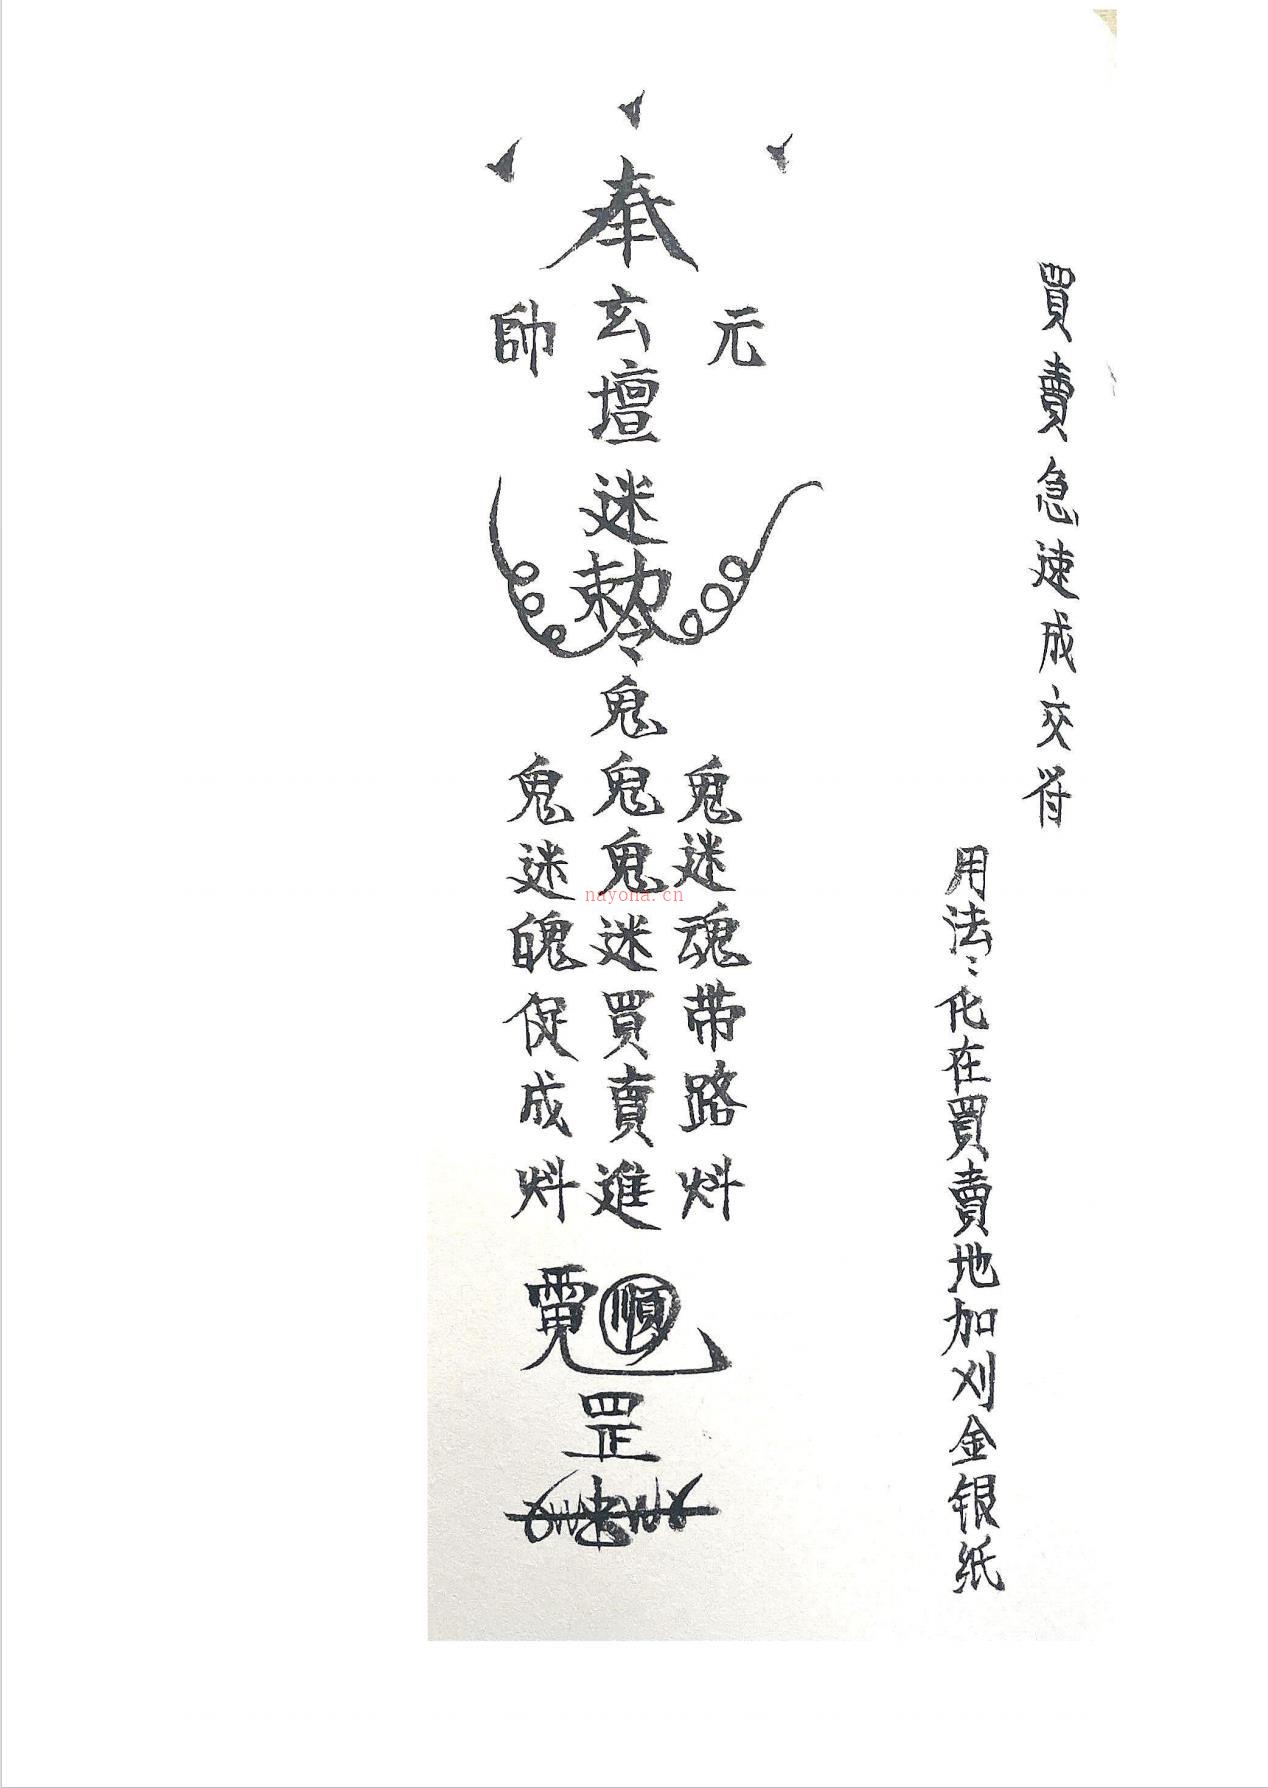 買賣急速成交符
用法：化在買賣地加刈金銀紙
奉
元帥
玄壇
迷
勅令
鬼
鬼迷魂帶路㪷
鬼鬼迷買賣進
鬼迷魄促成㪷
順
罡
nayona.cn